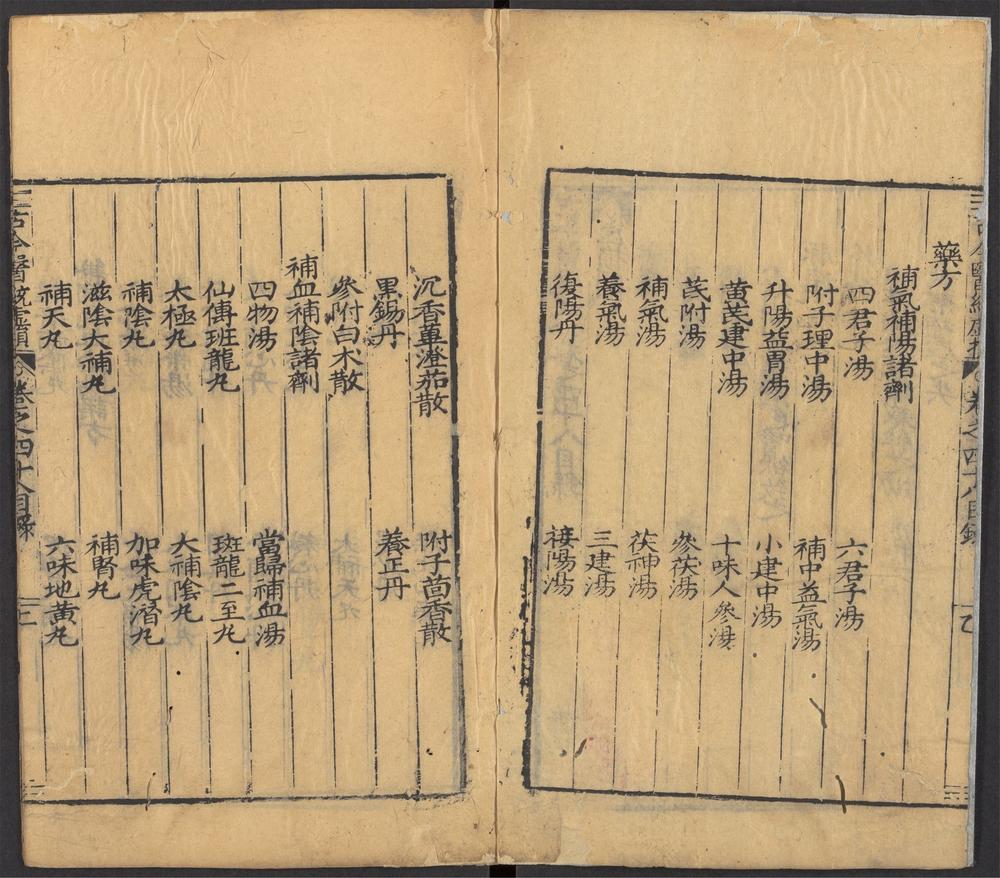 藥方
補氣補陽諸劑
四君子湯 六君子湯
附子理中湯 補中益氣湯
升陽益胃湯 小建中湯
黄芪建中湯 十味人參湯
芪附湯 參茯湯
補氣湯 茯神湯
養氣湯 三建湯
復陽丹 接陽湯
沉香蓽澄茄散 附子茴香散
黒錫丹 養正丹
參附白木散
補血補陰諸劑
四物湯 當歸補血湯
仙傳班龍丸 斑龍二至丸
太極丸 大補陰丸
補陰丸 加味虎潛丸
滋陰大補丸 補腎丸
補天丸 六味地黄丸
古今醫統 卷之四十八目録